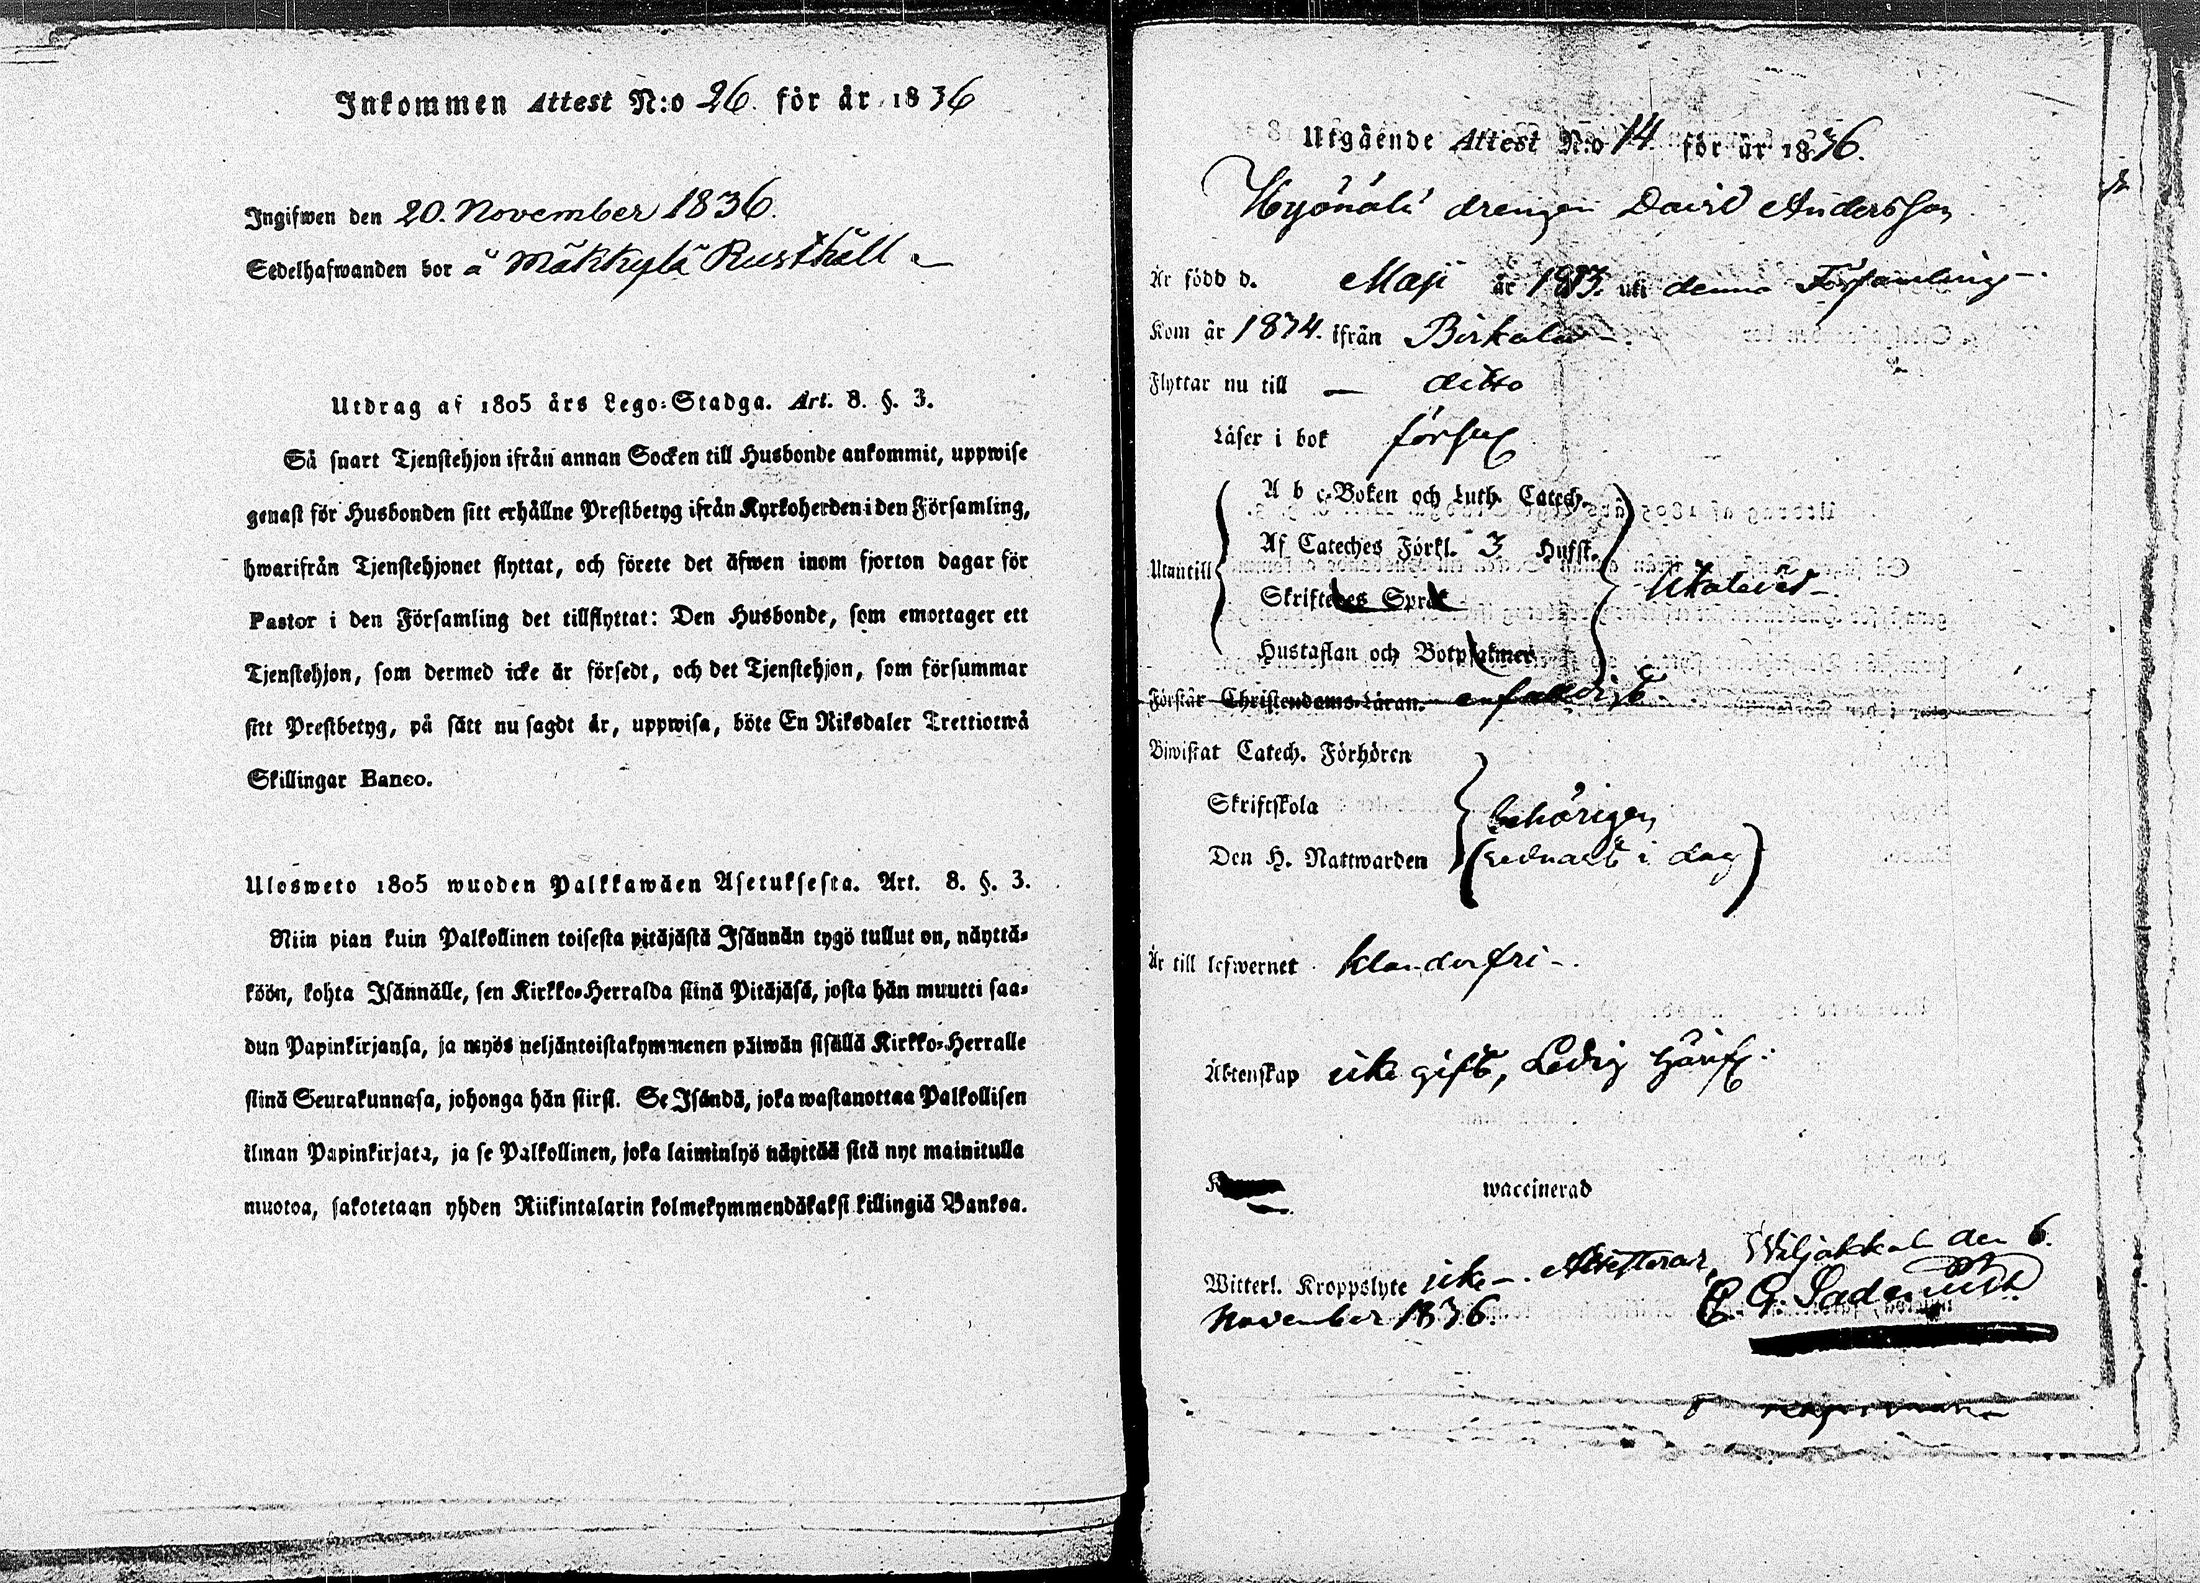 Inkommen Attest N:o 26. för år 1836
Ingifwen den 20. November 1836.
Sedelhafwanden bor å Mäkkylä Rusthåll
Utdrag af 1805 års Lego-Stadga. Art. 8. §. 3.
Så snart Tjenstehjon ifrån annan Socken till Husbonde ankommit, uppwise
genast för Husbonden sitt erhållne Prestbetyg ifrån Kyrkoherden i den Församling,
hwarifrån Tjenstehjonet flyttat, och förete det äfwen inom fjorton dagar för
Pastor i den Församling det tillflyttat: Den Husbonde, som emottager ett
Tjenstehjon, som dermed icke är försedt, och det Tjenstehjon, som försummar
sitt Prestbetyg, på sätt nu sagdt är, uppwisa, böte En Riksdaler Trettiotwå
Skillingar Banco.
Ulosweto 1805 wuoden Palkkawäen Asetuksesta. Art. 8. §. 3.
Niin pian kuin Palkollinen toisesta pitäjästä Isännän tygö tullut on, näyttä-
köön, kohta Isännälle, sen Kirkko-Herralda siinä Pitäjäsä, josta hän muutti saa-
dun Papinkirjansa, ja myös neljäntoistakymmenen päiwän sisällä Kirkko-Herralle
siinä Seurakunnasa, johonga hän siirsi. Se Isändä, joka wastanottaa Palkollisen
ilman Papinkirjata, ja se Palkollinen, joka laiminlyö näyttää sitä nyt mainitulla
muotoa, sakotetaan yhden Riikintalarin kolmekymmendäkaksi killingiä Bankoa.
Utgående Attest N:o 14. för år 1836.
drengen David Andersson
Är född d. Maji år 1813. uti denna Församling
Kom år 1834. ifrån Birkala
Flyttar nu till ditto
Läser i bok
A b c-Boken och Luth. Catech.
Af Cateches Förkl. 3 Hufst.
Utantill
Skriftenes Språk
Hustaflan och Botpsalmer
Förstår Christendoms-Läran. enfaldigt
Biwistat Catech. Förhören
Skriftskola behörigen
Den H. Nattwarden (sednast i dag)
Är till lefwernet klanderfri
Äktenskap icke gift, Ledig
waccinerad
Witterl. Kroppslyte icke. Attesterar, Wiljakkala den 6.
November 1836.